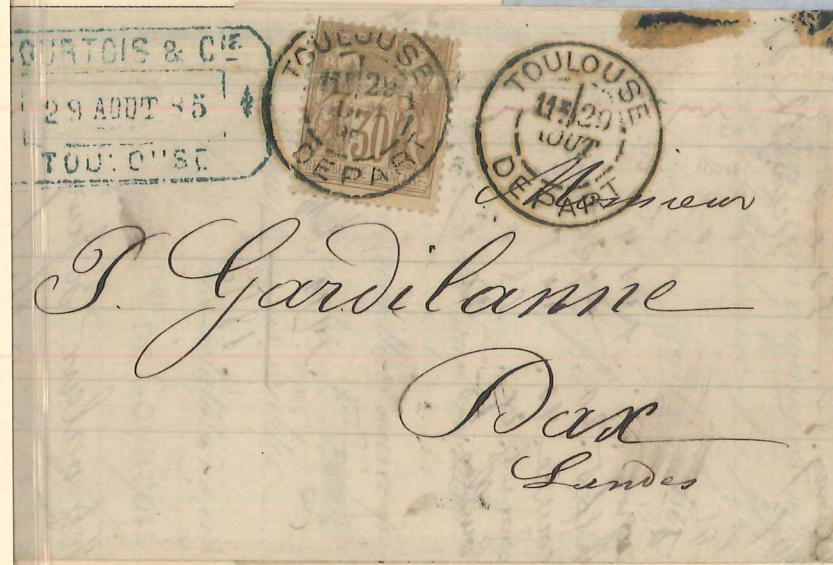 COURTOIS & CIE
29 AOUT 85
TOULOUSE
TOULOUSE
29
30
DEPART
TOULOUSE
11E 29
AOUT
DEPART
Monsieur
P. Gardilanne
Dax
Landes